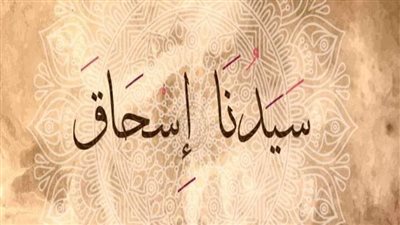 سَيَدُنَا إِسْحَاقَ